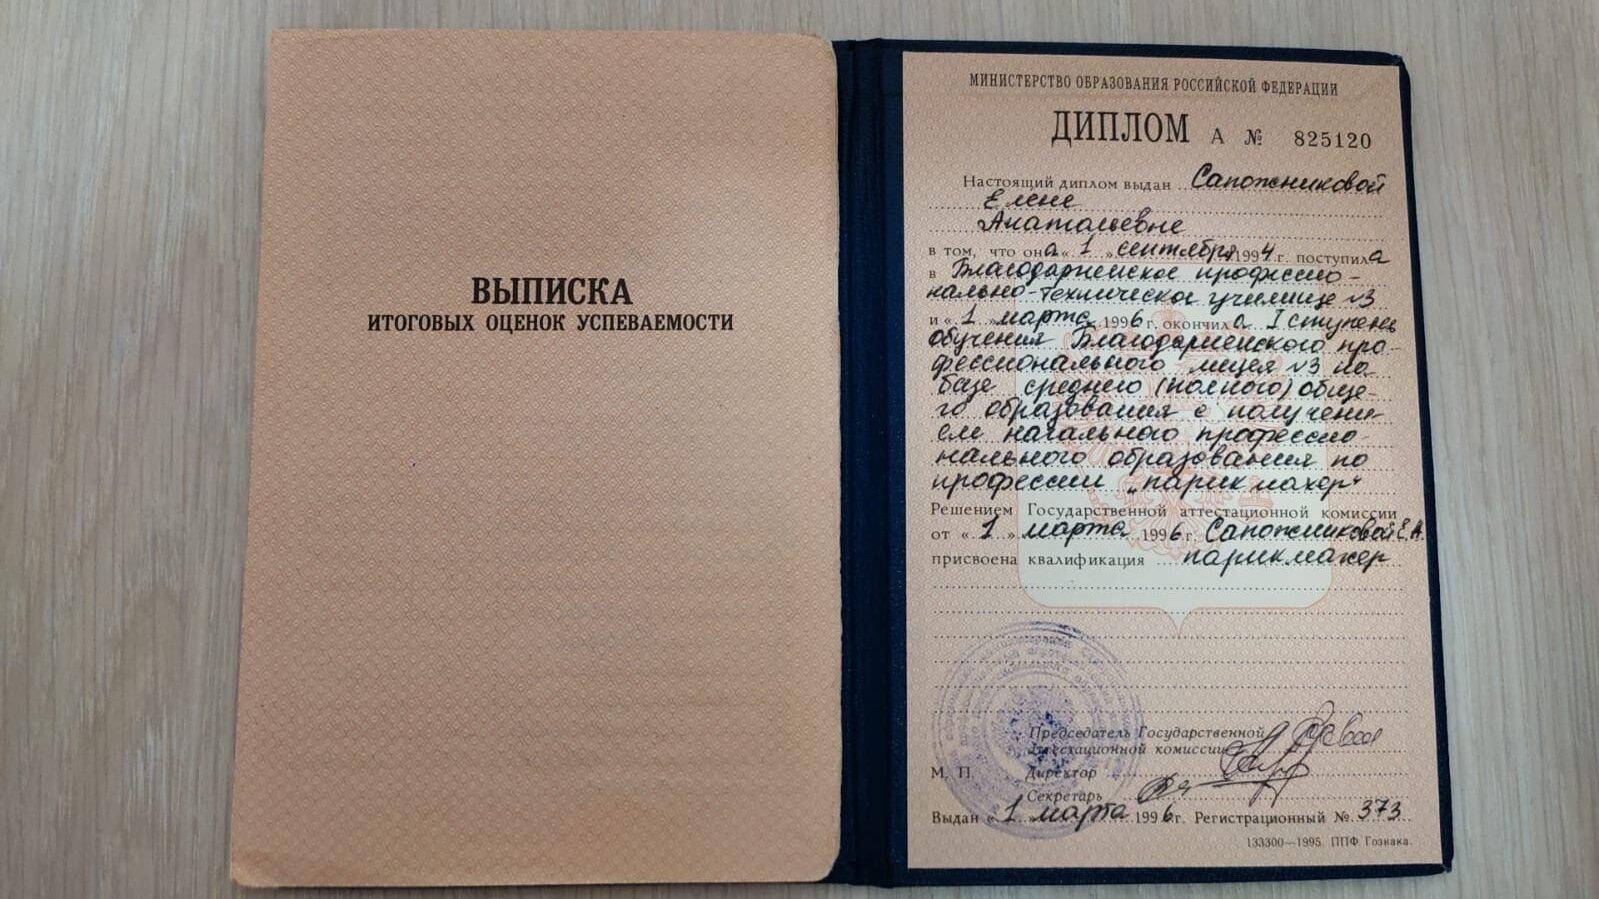 ВЫПИСКА
ИТОГОВЫХ ОЦЕНОК УСПЕВАЕМОСТИ
МИНИСТЕРСТВО ОБРАЗОВАНИЯ РОССИЙСКОЙ ФЕДЕРАЦИИ
ДИПЛОМ А № 825120
Настоящий диплом выдан Сапожниковой
Елене
Анатольевне
в том, что она «1» сентября 1994 г. поступила
в Благодарненское профессио-
нально-техническое училище №3
и «1» марта 1996 г. окончила I ступень
обучения Благодарненского про-
фессионального лицея №3 на
базе среднего (полного) обще-
го образования с получени-
ем начального профессио-
нального образования по
профессии „парикмахер“
Решением Государственной аттестационной комиссии
от «1» марта 1996 г. Сапожниковой Е.А.
присвоена квалификация парикмахер
Председатель Государственной
аттестационной комиссии
М. П. Директор
Секретарь
Выдан «1» марта 1996 г. Регистрационный № 373
133300—1995. ППФ Гознака.